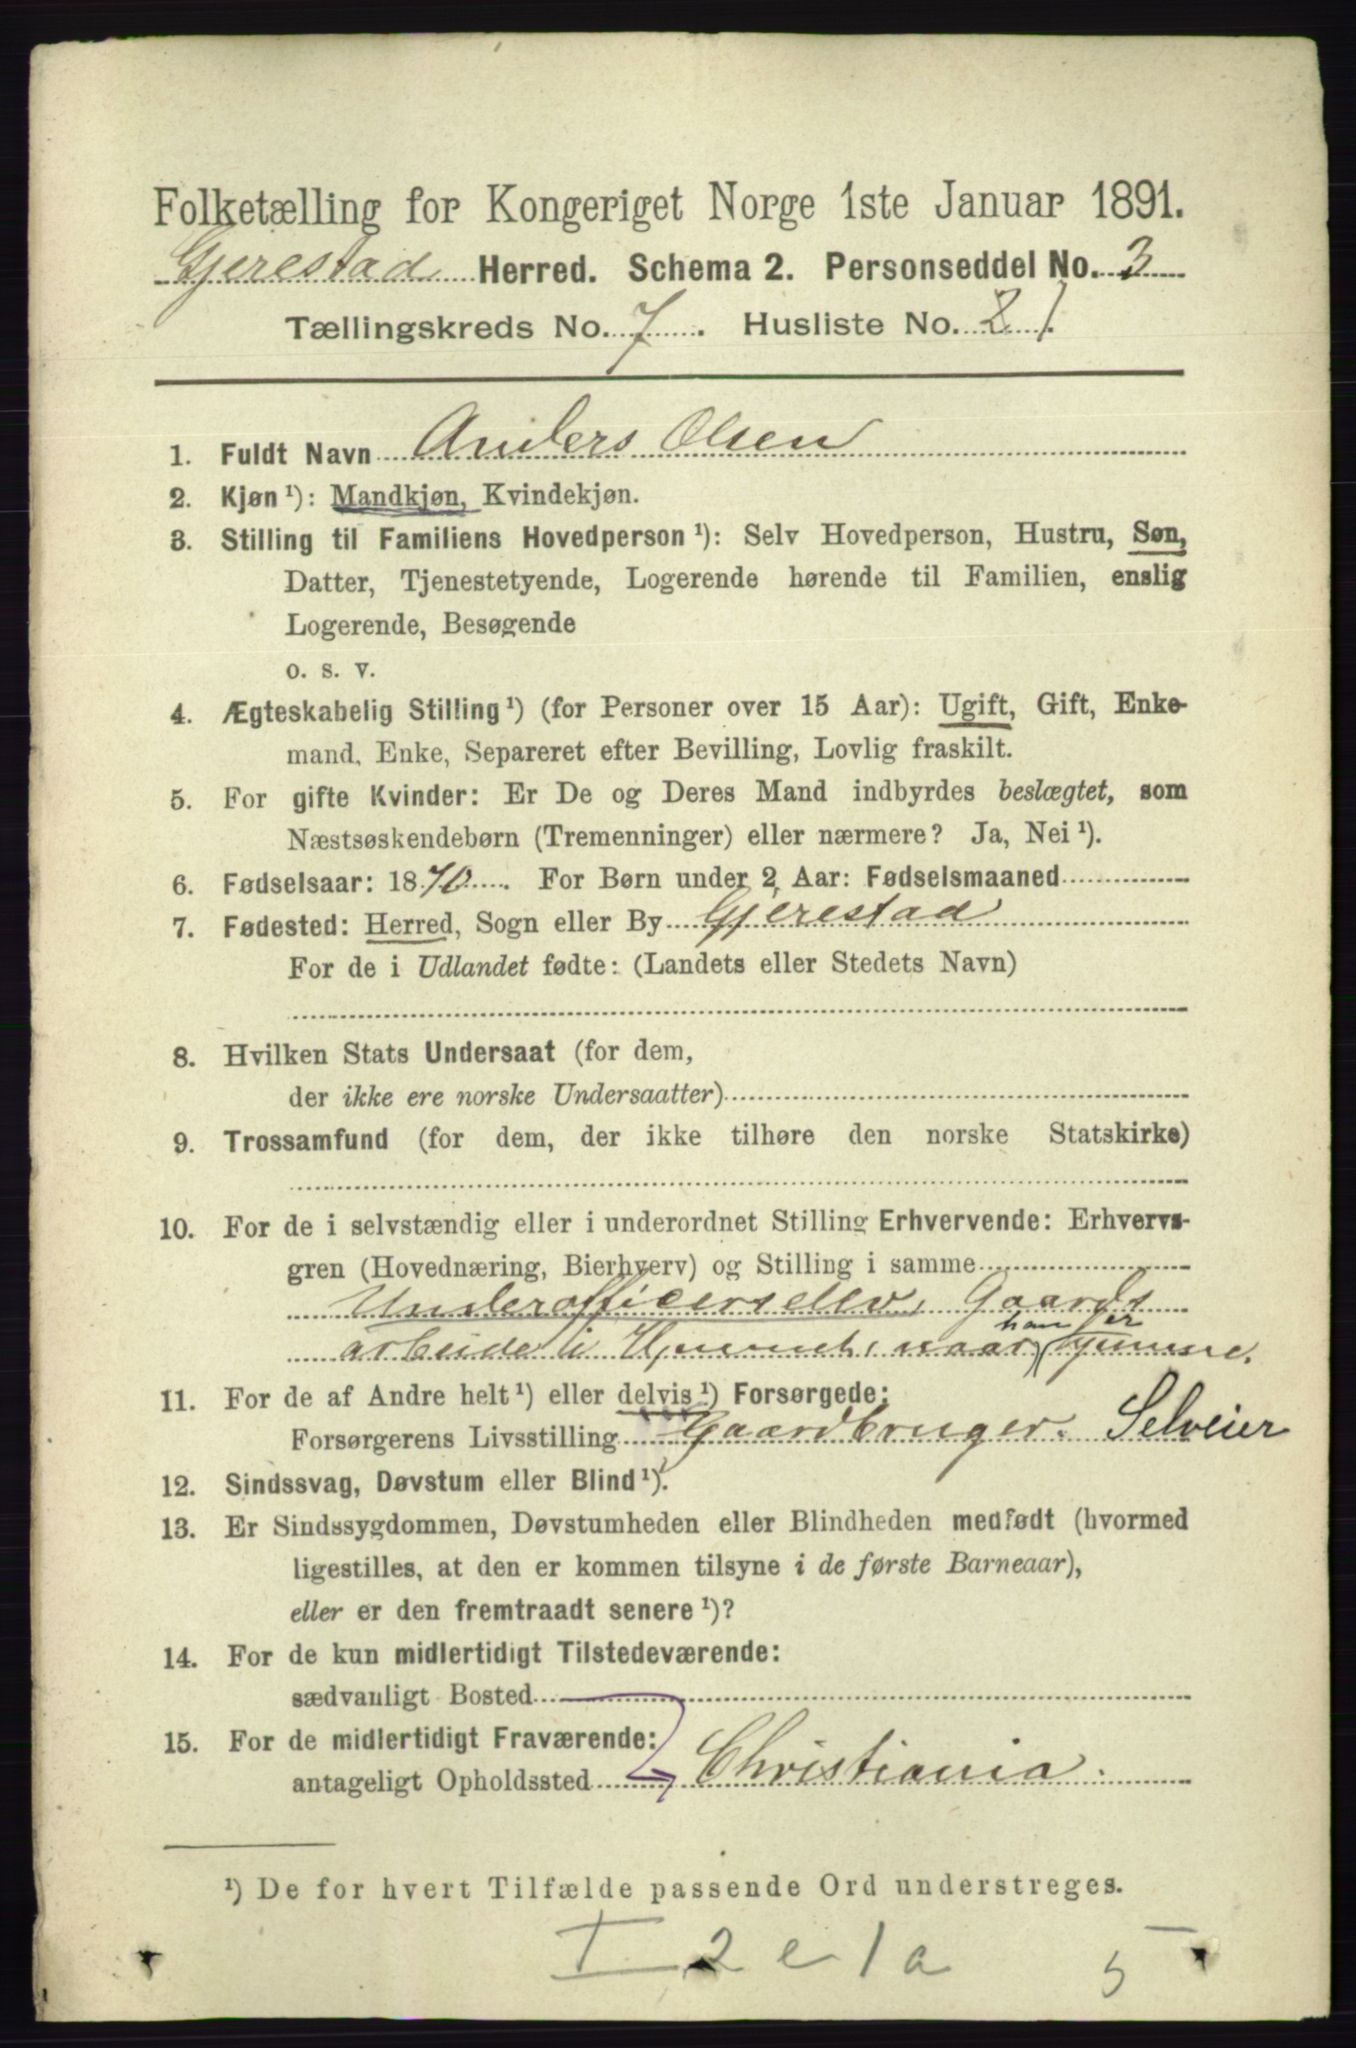 Folketælling for Kongeriget Norge 1ste Januar 1891.
Gjerestad Herred. Schema 2. Personseddel No. 3
Tællingskreds No. 7. Husliste No. 21.
1. Fuldt Navn Anders Olsen
2. Kjøn ¹): Mandkjøn, Kvindekjøn.
3. Stilling til Familiens Hovedperson ¹): Selv Hovedperson, Hustru, Søn,
Datter, Tjenestetyende, Logerende hørende til Familien, enslig
Logerende, Besøgende
o. s. v.
4. Ægteskabelig Stilling ¹) (for Personer over 15 Aar): Ugift, Gift, Enke-
mand, Enke, Separeret efter Bevilling, Lovlig fraskilt.
5. For gifte Kvinder: Er De og Deres Mand indbyrdes beslægtet, som
Næstsøskendebørn (Tremenninger) eller nærmere? Ja, Nei ¹).
6. Fødselsaar: 1870. For Børn under 2 Aar: Fødselsmaaned
7. Fødested: Herred, Sogn eller By Gjerestad
For de i Udlandet fødte: (Landets eller Stedets Navn)
8. Hvilken Stats Undersaat (for dem,
der ikke ere norske Undersaatter)
9. Trossamfund (for dem, der ikke tilhøre den norske Statskirke)
10. For de i selvstændig eller i underordnet Stilling Erhvervende: Erhvervs-
gren (Hovednæring, Bierhverv) og Stilling i samme
Underofficerselev, Gaards
arbeide i Hjemmet, naar han er hjemme.
11. For de af Andre helt ¹) eller delvis ¹) Forsørgede:
Forsørgerens Livsstilling Gaardbruger. Selveier
12. Sindssvag, Døvstum eller Blind ¹).
13. Er Sindssygdommen, Døvstumheden eller Blindheden medfødt (hvormed
ligestilles, at den er kommen tilsyne i de første Barneaar),
eller er den fremtraadt senere ¹)?
14. For de kun midlertidigt Tilstedeværende:
sædvanligt Bosted
15. For de midlertidigt Fraværende:
antageligt Opholdssted Christiania.
¹) De for hvert Tilfælde passende Ord understreges.
I 2 e 1a 5